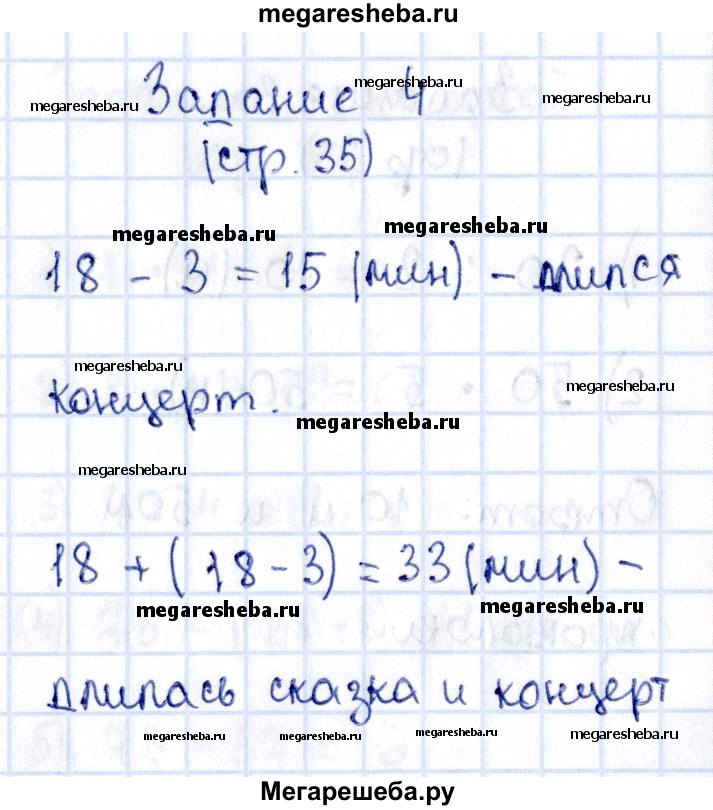 megaresheba.ru
megaresheba.ru
Задание 4
megaresheba.ru
megaresheba.ru
(стр. 35)
megaresheba.ru
megaresheba.ru
18 - 3 = 15 (мин) - длился
megaresheba.ru
megaresheba.ru
концерт.
megaresheba.ru
megaresheba.ru
18 + (18 - 3) = 33 (мин) -
megaresheba.ru
megaresheba.ru
длилась сказка и концерт
megaresheba.ru megaresheba.ru megaresheba.ru megaresheba.ru
Мегарешеба.ру